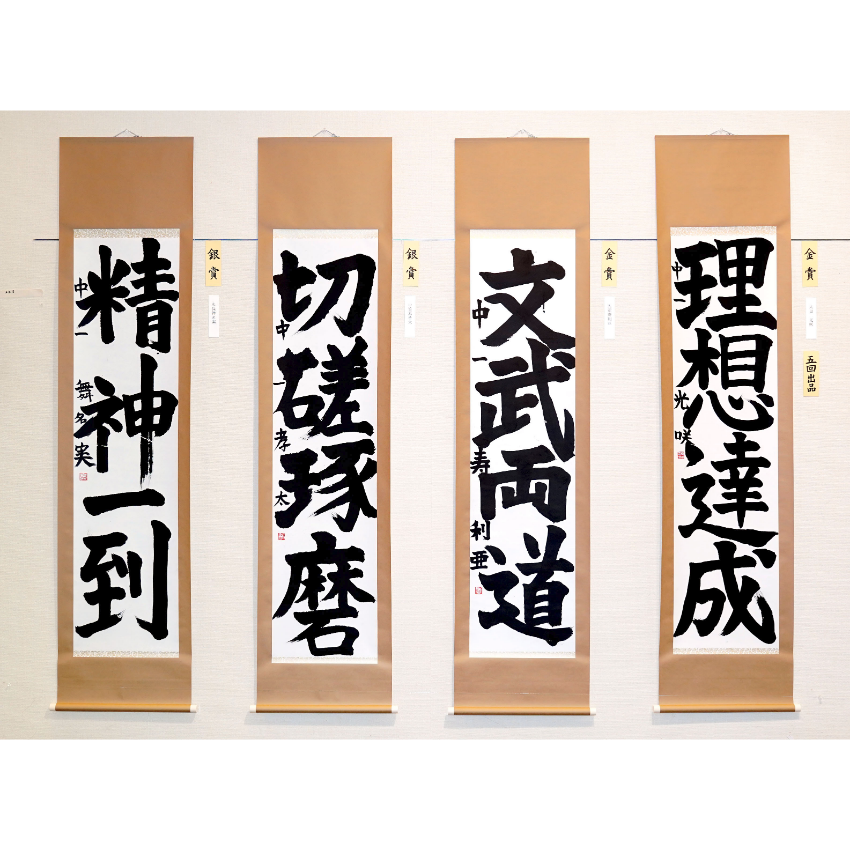 理想達成
中一 光咲
金賞
五回出品
文武両道
中一 寿利亜
金賞
切磋琢磨
中一 孝太
銀賞
精神一到
中一 舞名実
銀賞